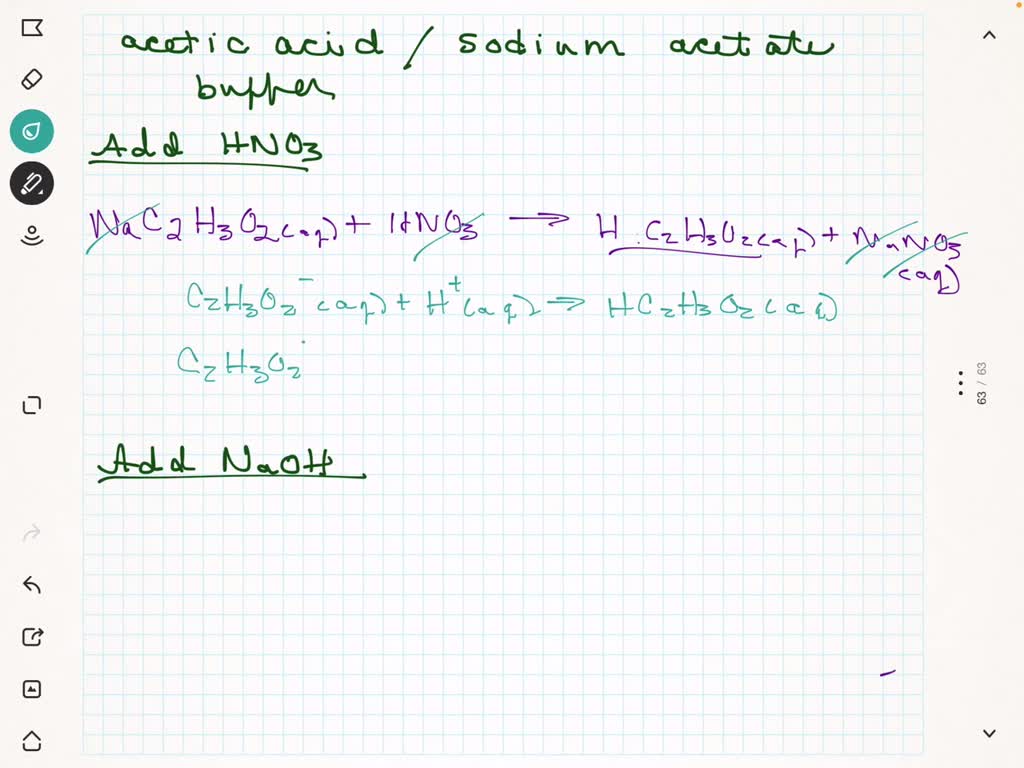 acetic acid / sodium acetate
buffer
Add HNO3
NaC2H3O2(aq) + HNO3 → H C2H3O2(aq) + NaNO3
(aq)
C2H3O2⁻(aq) + H⁺(aq) → HC2H3O2(aq)
C2H3O2
63 / 63
Add NaOH